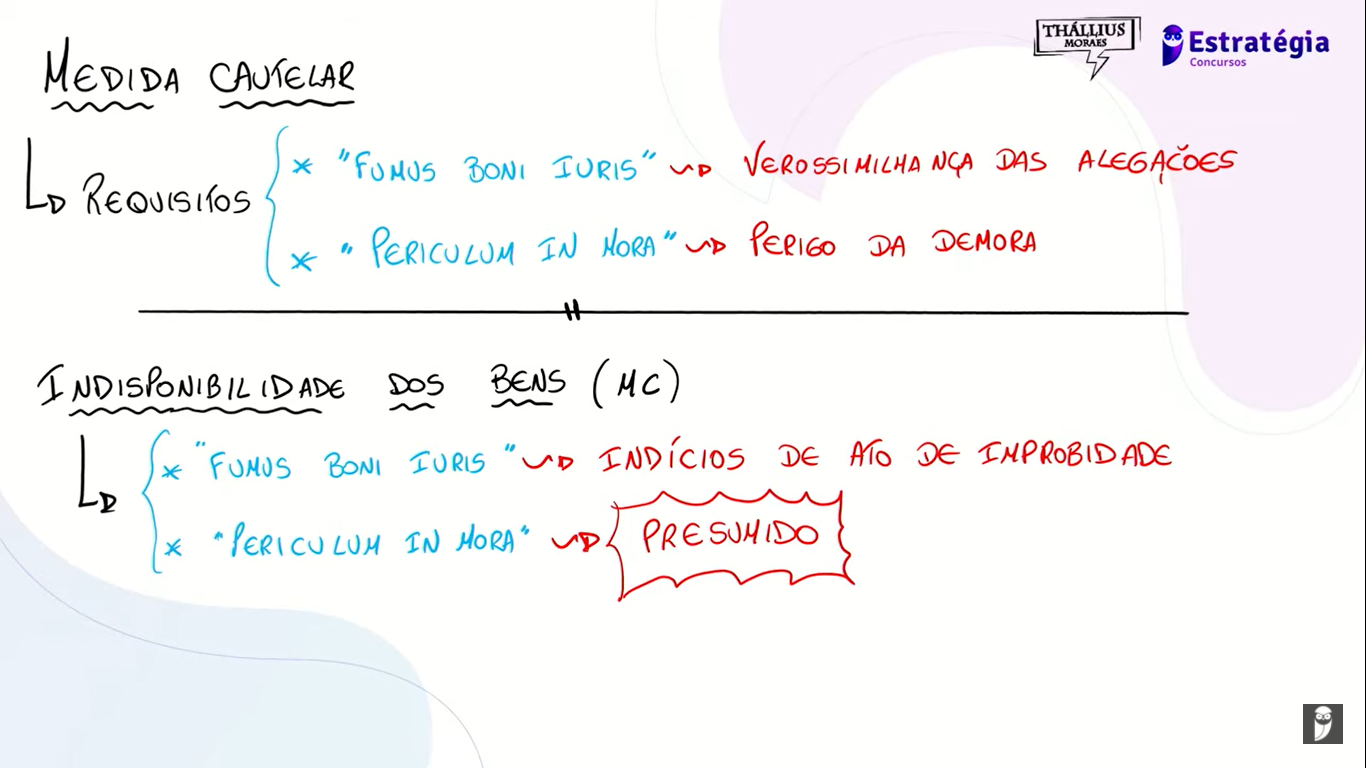 THÁLLIUS
MORAES
Estratégia
Concursos
MEDIDA CAUTELAR
REQUISITOS
* "FUMUS BONI IURIS" VEROSSIMILHANÇA DAS ALEGAÇÕES
* "PERICULUM IN MORA" PERIGO DA DEMORA
INDISPONIBILIDADE DOS BENS (MC)
* "FUMUS BONI IURIS" INDÍCIOS DE ATO DE IMPROBIDADE
* "PERICULUM IN MORA" PRESUMIDO